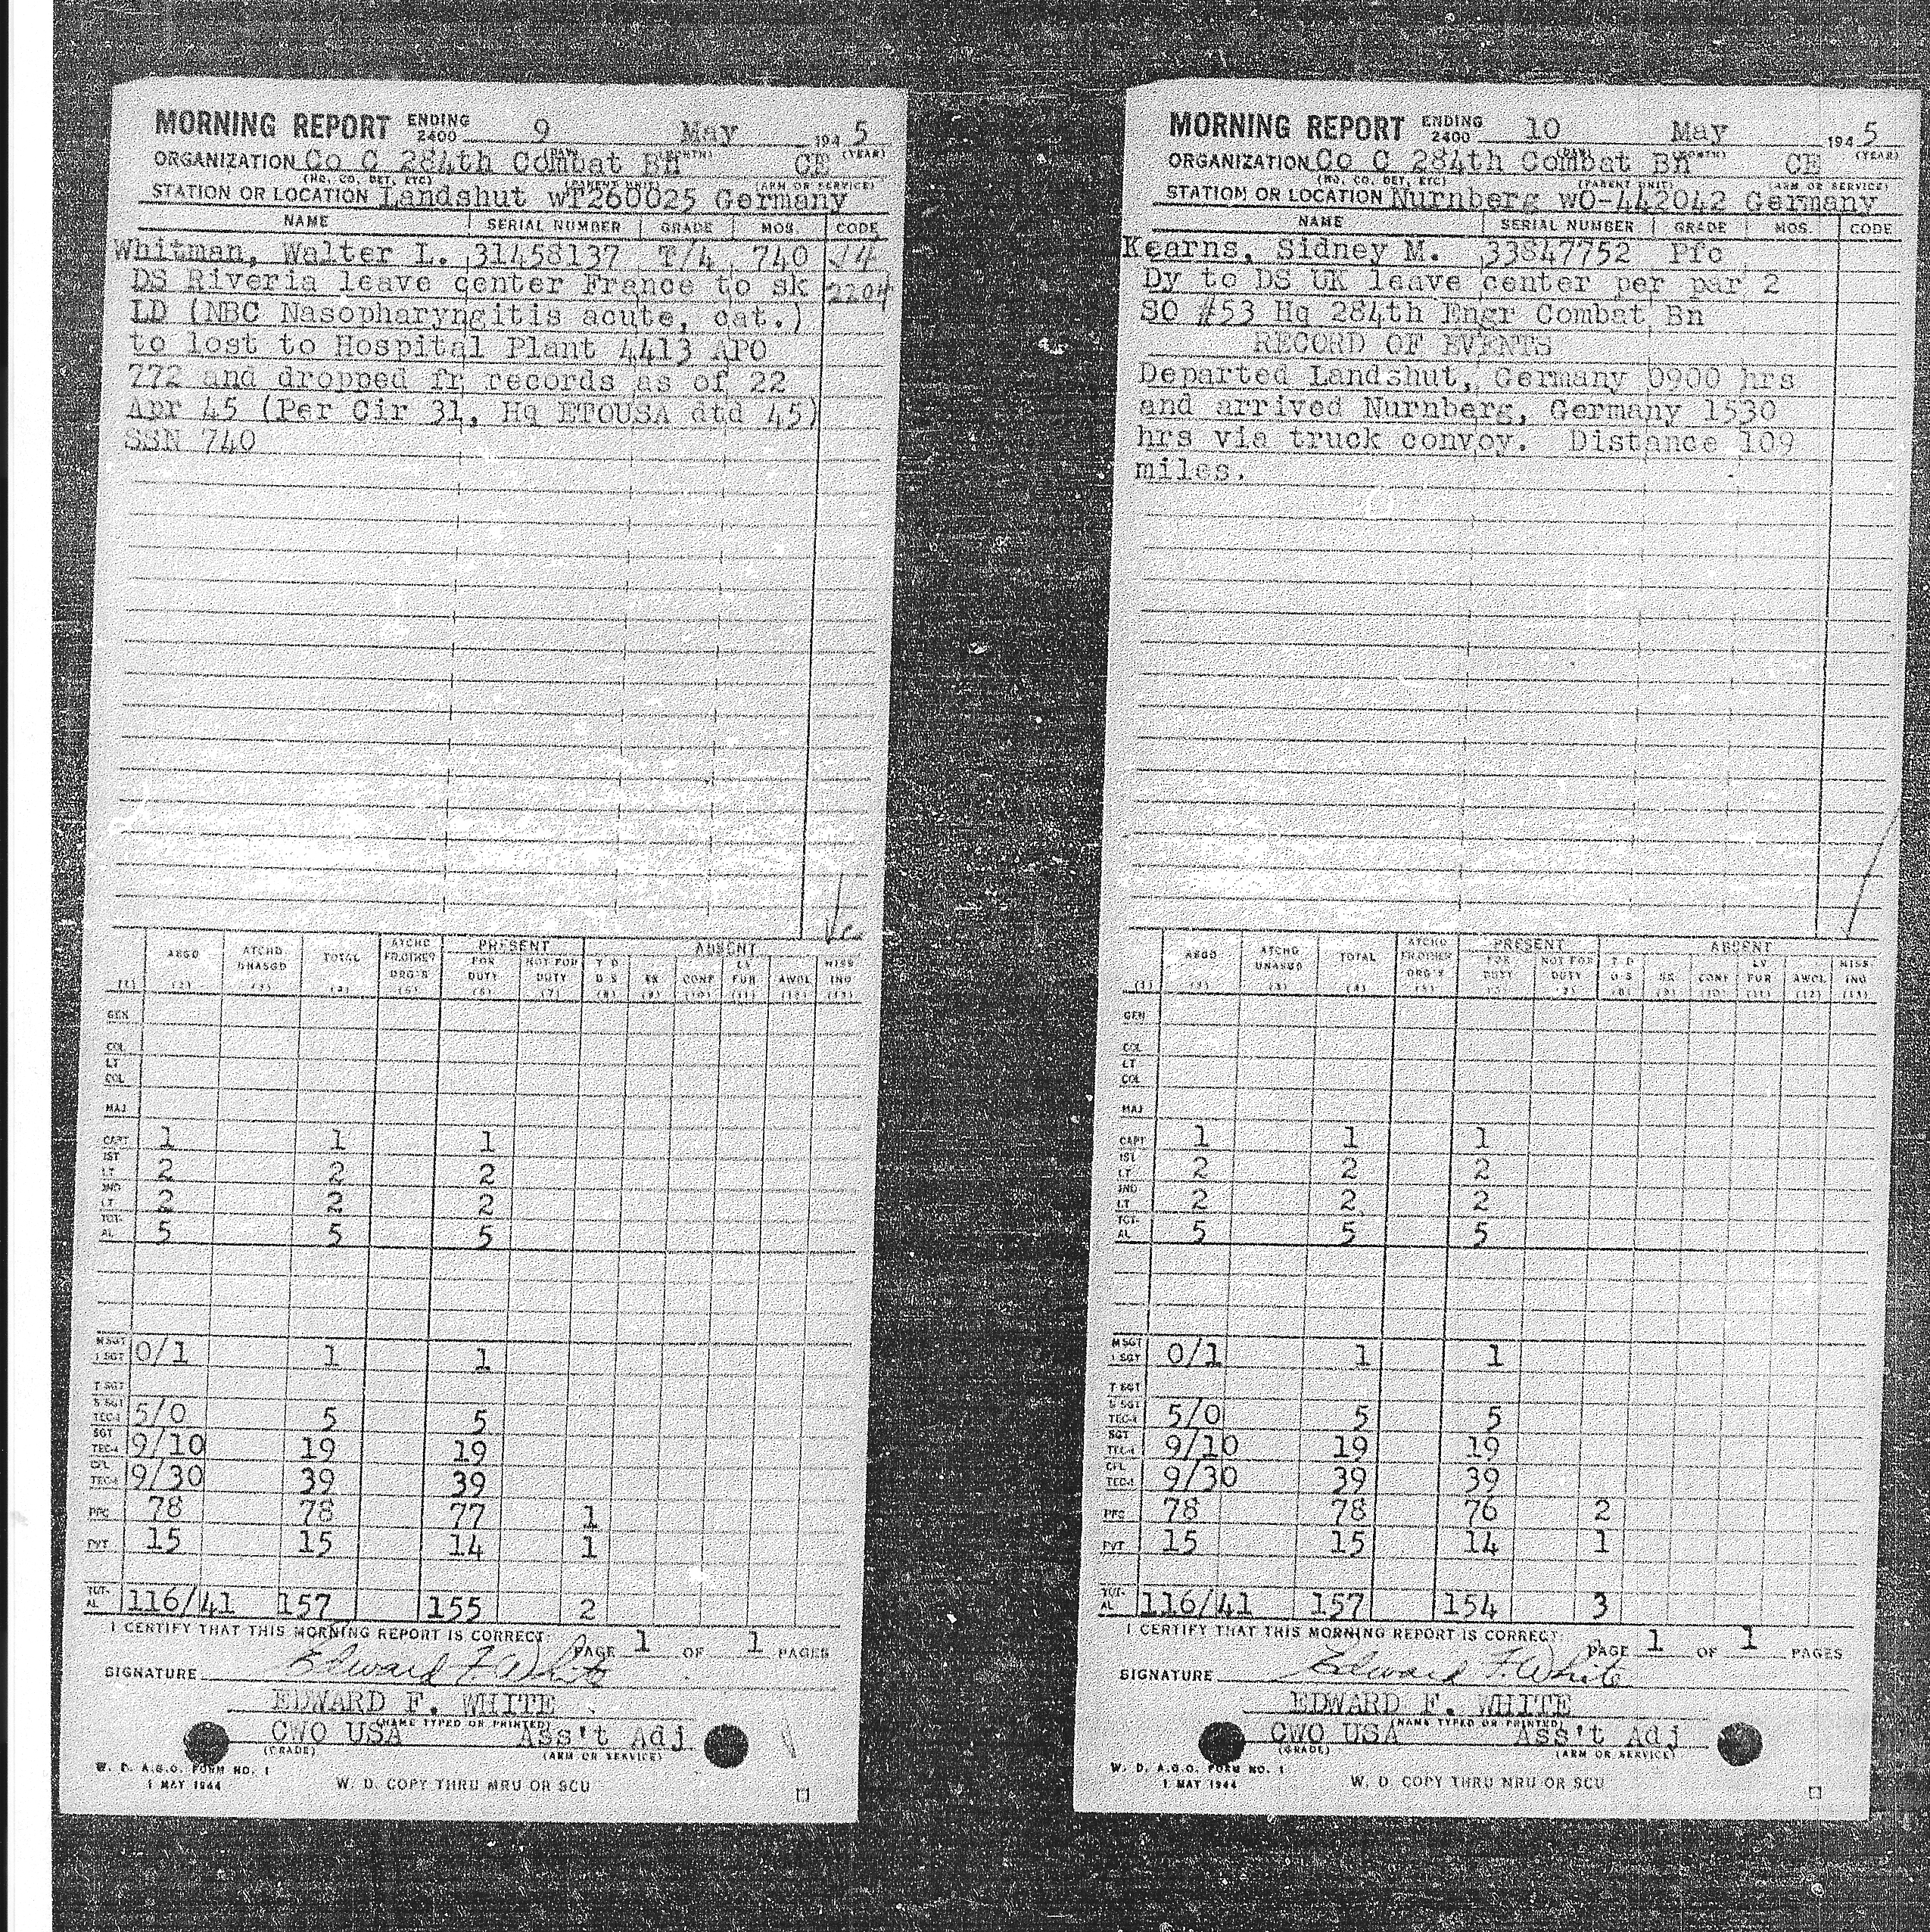 MORNING REPORT ENDING 2400 9 May 1945
(DAY) (MONTH) (YEAR)
ORGANIZATION Co C 284th Combat Bn CE
(HQ. CO. DET. ETC) (PARENT UNIT) (ARM OR SERVICE)
STATION OR LOCATION Landshut wT260025 Germany
NAME SERIAL NUMBER GRADE MOS. CODE
Whitman, Walter L. 31458137 T/4 740
DS Riveria leave center France to sk 2204
LD (NBC Nasopharyngitis acute, cat.)
to lost to Hospital Plant 4413 APO
772 and dropped fr records as of 22
Apr 45 (Per Cir 31, Hq ETOUSA dtd 45)
SSN 740
ASGD ATCHD UNASGD TOTAL ATCHD FR.OTHER ORG'S PRESENT FOR DUTY NOT FOR DUTY ABSENT T D D S SK CONF LV FUR AWOL MISS ING
(1) (2) (3) (4) (5) (6) (7) (8) (9) (10) (11) (12) (13)
GEN
COL
LT COL
MAJ
CAPT 1 1 1
1ST LT 2 2 2
2ND LT 2 2 2
TOT-AL 5 5 5
M SGT 1 SGT 0/1 1 1
T SGT
S SGT TEC-3 5/0 5 5
SGT TEC-4 9/10 19 19
CPL TEC-5 9/30 39 39
PFC 78 78 77 1
PVT 15 15 14 1
TOT-AL 116/41 157 155 2
I CERTIFY THAT THIS MORNING REPORT IS CORRECT. PAGE 1 OF 1 PAGES
SIGNATURE Edward F. White
EDWARD F. WHITE
(NAME TYPED OR PRINTED)
CWO USA Ass't Adj
(GRADE) (ARM OR SERVICE)
W. D. A.G.O. FORM NO. 1
1 MAY 1944 W. D. COPY THRU MRU OR SCU
MORNING REPORT ENDING 2400 10 May 1945
(DAY) (MONTH) (YEAR)
ORGANIZATION Co C 284th Combat Bn CE
(HQ. CO. DET. ETC) (PARENT UNIT) (ARM OR SERVICE)
STATION OR LOCATION Nurnberg wO-442042 Germany
NAME SERIAL NUMBER GRADE MOS. CODE
Kearns, Sidney M. 33847752 Pfc
Dy to DS UK leave center per par 2
SO #53 Hq 284th Engr Combat Bn
RECORD OF EVENTS
Departed Landshut, Germany 0900 hrs
and arrived Nurnberg, Germany 1530
hrs via truck convoy. Distance 109
miles.
ASGD ATCHD UNASGD TOTAL ATCHD FR.OTHER ORG'S PRESENT FOR DUTY NOT FOR DUTY ABSENT T D D S SK CONF LV FUR AWOL MISS ING
(1) (2) (3) (4) (5) (6) (7) (8) (9) (10) (11) (12) (13)
GEN
COL
LT COL
MAJ
CAPT 1 1 1
1ST LT 2 2 2
2ND LT 2 2 2
TOT-AL 5 5 5
M SGT 1 SGT 0/1 1 1
T SGT
S SGT TEC-3 5/0 5 5
SGT TEC-4 9/10 19 19
CPL TEC-5 9/30 39 39
PFC 78 78 76 2
PVT 15 15 14 1
TOT-AL 116/41 157 154 3
I CERTIFY THAT THIS MORNING REPORT IS CORRECT. PAGE 1 OF 1 PAGES
SIGNATURE Edward F. White
EDWARD F. WHITE
(NAME TYPED OR PRINTED)
CWO USA Ass't Adj
(GRADE) (ARM OR SERVICE)
W. D. A.G.O. FORM NO. 1
1 MAY 1944 W. D. COPY THRU MRU OR SCU